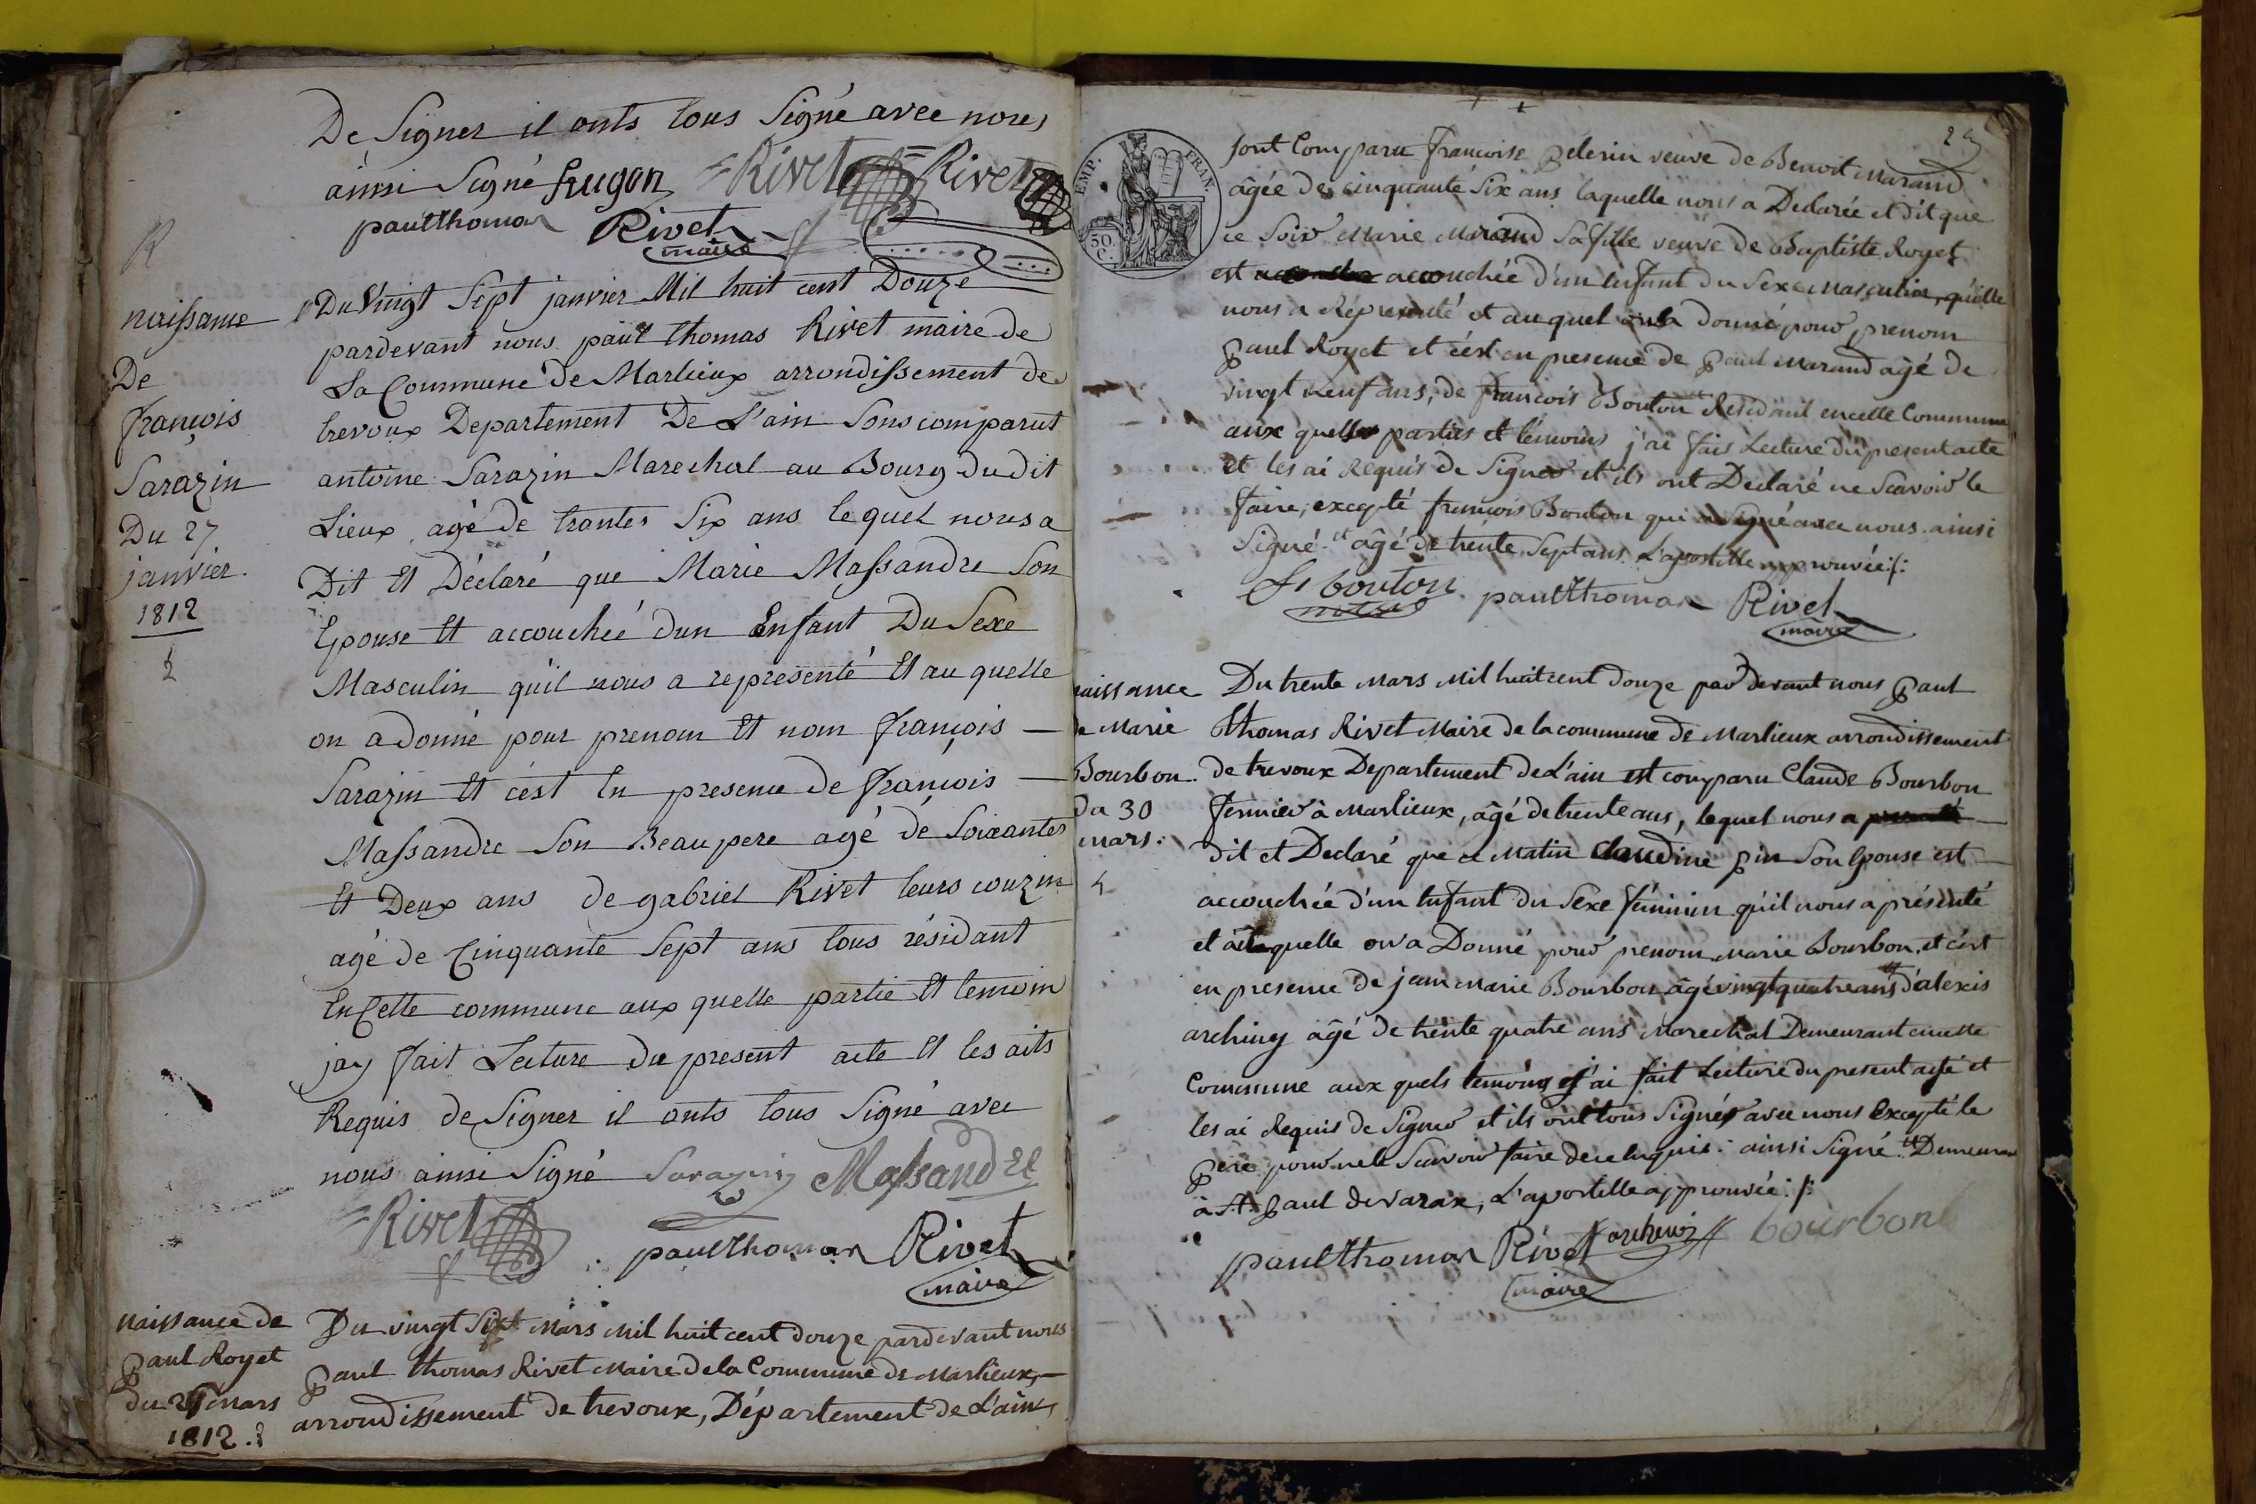 De Signer il onts tous Signé avec nous
ainsi Signé frugon Rivet Rivet
paulthomas Rivet
maire
R
naissance
De
françois
Sarazin
Du 27
janvier.
1812
Du Vingt Sept janvier Mil huit cent Douze
pardevant nous paul thomas Rivet maire de
La Commune de Marlieux arrondissement de
trevoux Departement De L'ain Sons comparut
antoine Sarazin Marechal au Bourg du dit
Lieux agé de trantes Six ans le quel nous a
Dit Et Déclaré que Marie Massandre Son
Epouse Et accouchée dun Enfant Du Sexe
Masculin qu'il nous a représenté Et au quelle
on a donné pour prenom Et nom François
Sarazin Et c'est En presence de françois
Massandre Son Beaupere agé de Soixantes
Et Deux ans de gabriel Rivet leurs couzin
agé de Cinquante Sept ans tous résidant
En Cette commune aux quelle partie Et temoin
jay fait Lecture du present acte Et les aits
Requis de Signer il onts tous Signé avec
nous ainsi Signé Sarazin Massandre
Rivet
paulthomas Rivet
maire
Naissance de
Paul Royet
du 26 mars
1812.
Du vingt Six Mars Mil huit cent douze pardevant nous
Paul thomas Rivet Maire de la Commune de Marlieux,
arrondissement de trevoux, Département de L'ain,
25
EMP. FRAN.
50
C.
sont Comparu francoise Pelerin veuve de Benoit Marand
âgée de cinquante Six ans laquelle nous a Declarée et dit que
ce Soir Marie Marand Sa fille veuve de Baptiste Royet
est accouchée d'un Enfant du Sexe Masculin, qu'elle
nous a Réprésenté et auquel on a donné pour prenom
Paul Royet et c'est en presence de Paul Marand agé de
vingt neuf ans, de François Bouton Residant en cette Commune
aux quelles parties et témoins j'ai fais Lecture du present acte
et les ai Requis de Signer et ils ont Declaré ne Scavoir le
faire, excepté françois Bouton qui a Signé avec nous ainsi
Signé. et âgé de trente Sept ans L'apostille approuvée ./.
fs bouton paulthomas Rivet
maire
naissance
de Marie
Bourbon.
Du 30
mars.
Du trente Mars Mil huit cent douze par devant nous Paul
thomas Rivet Maire de la commune de Marlieux arrondissement
de trevoux Departement de L'ain est comparu Claude Bourbon
fermier à Marlieux, âgé de trente ans, lequel nous a
dit et Declaré que ce Matin Claudine Pin Son Epouse est
accouchée d'un Enfant du Sexe féminin qu'il nous a présenté
et à laquelle on a Donné pour prenom Marie Bourbon, et c'est
en presence de jean marie Bourbon âgé vingt quatre ans d'alexis
archiny âgé de trente quatre ans Marechal Demeurant en cette
Commune aux quels temoins j'ai fait Lecture du present acte et
les ai Requis de Signer et ils ont tous Signés avec nous Excepté le
Pere pour ne le Scavoir faire de ce Enquis: ainsi Signé. Demeurant
à St. Paul de varax, L'apostille approuvée ./.
paulthomas Rivet bourbon
maire